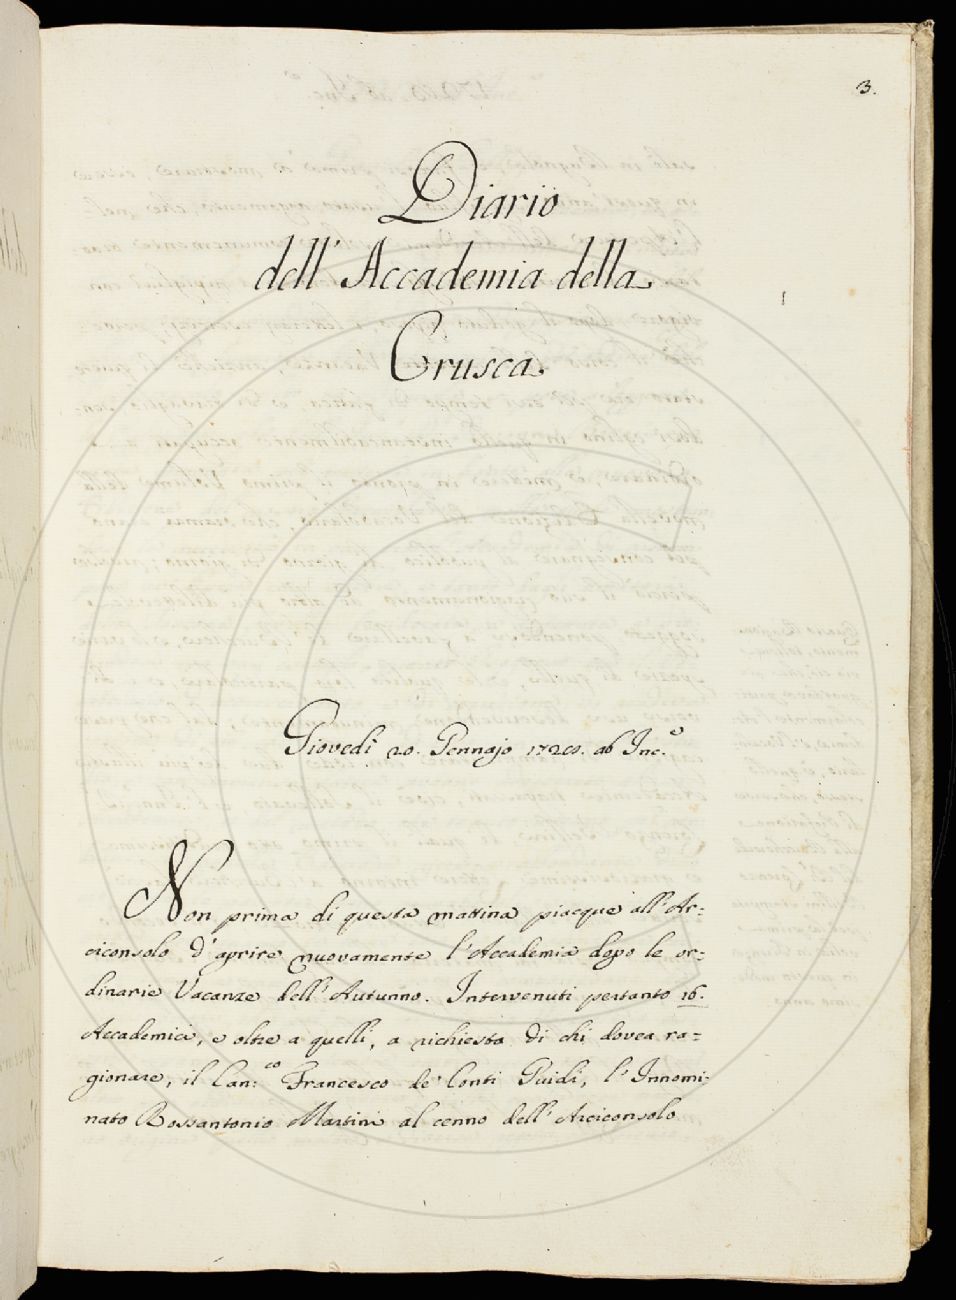 3.
Diario
dell' Accademia della
Crusca.
Giovedì 20. Gennajo 1728. ab Inc.e
Non prima di questa mattina piacque all'Ar=
ciconsolo d'aprire nuovamente l'Accademia dopo le or=
dinarie Vacanze dell'Autunno. Intervenuti pertanto 16.
Accademici, e oltre a quelli, a richiesta di chi dovea ra=
gionare, il Can:co Francesco de' Conti Guidi, l'Innomi=
nato Rossantonio Martini al cenno dell'Arciconsolo